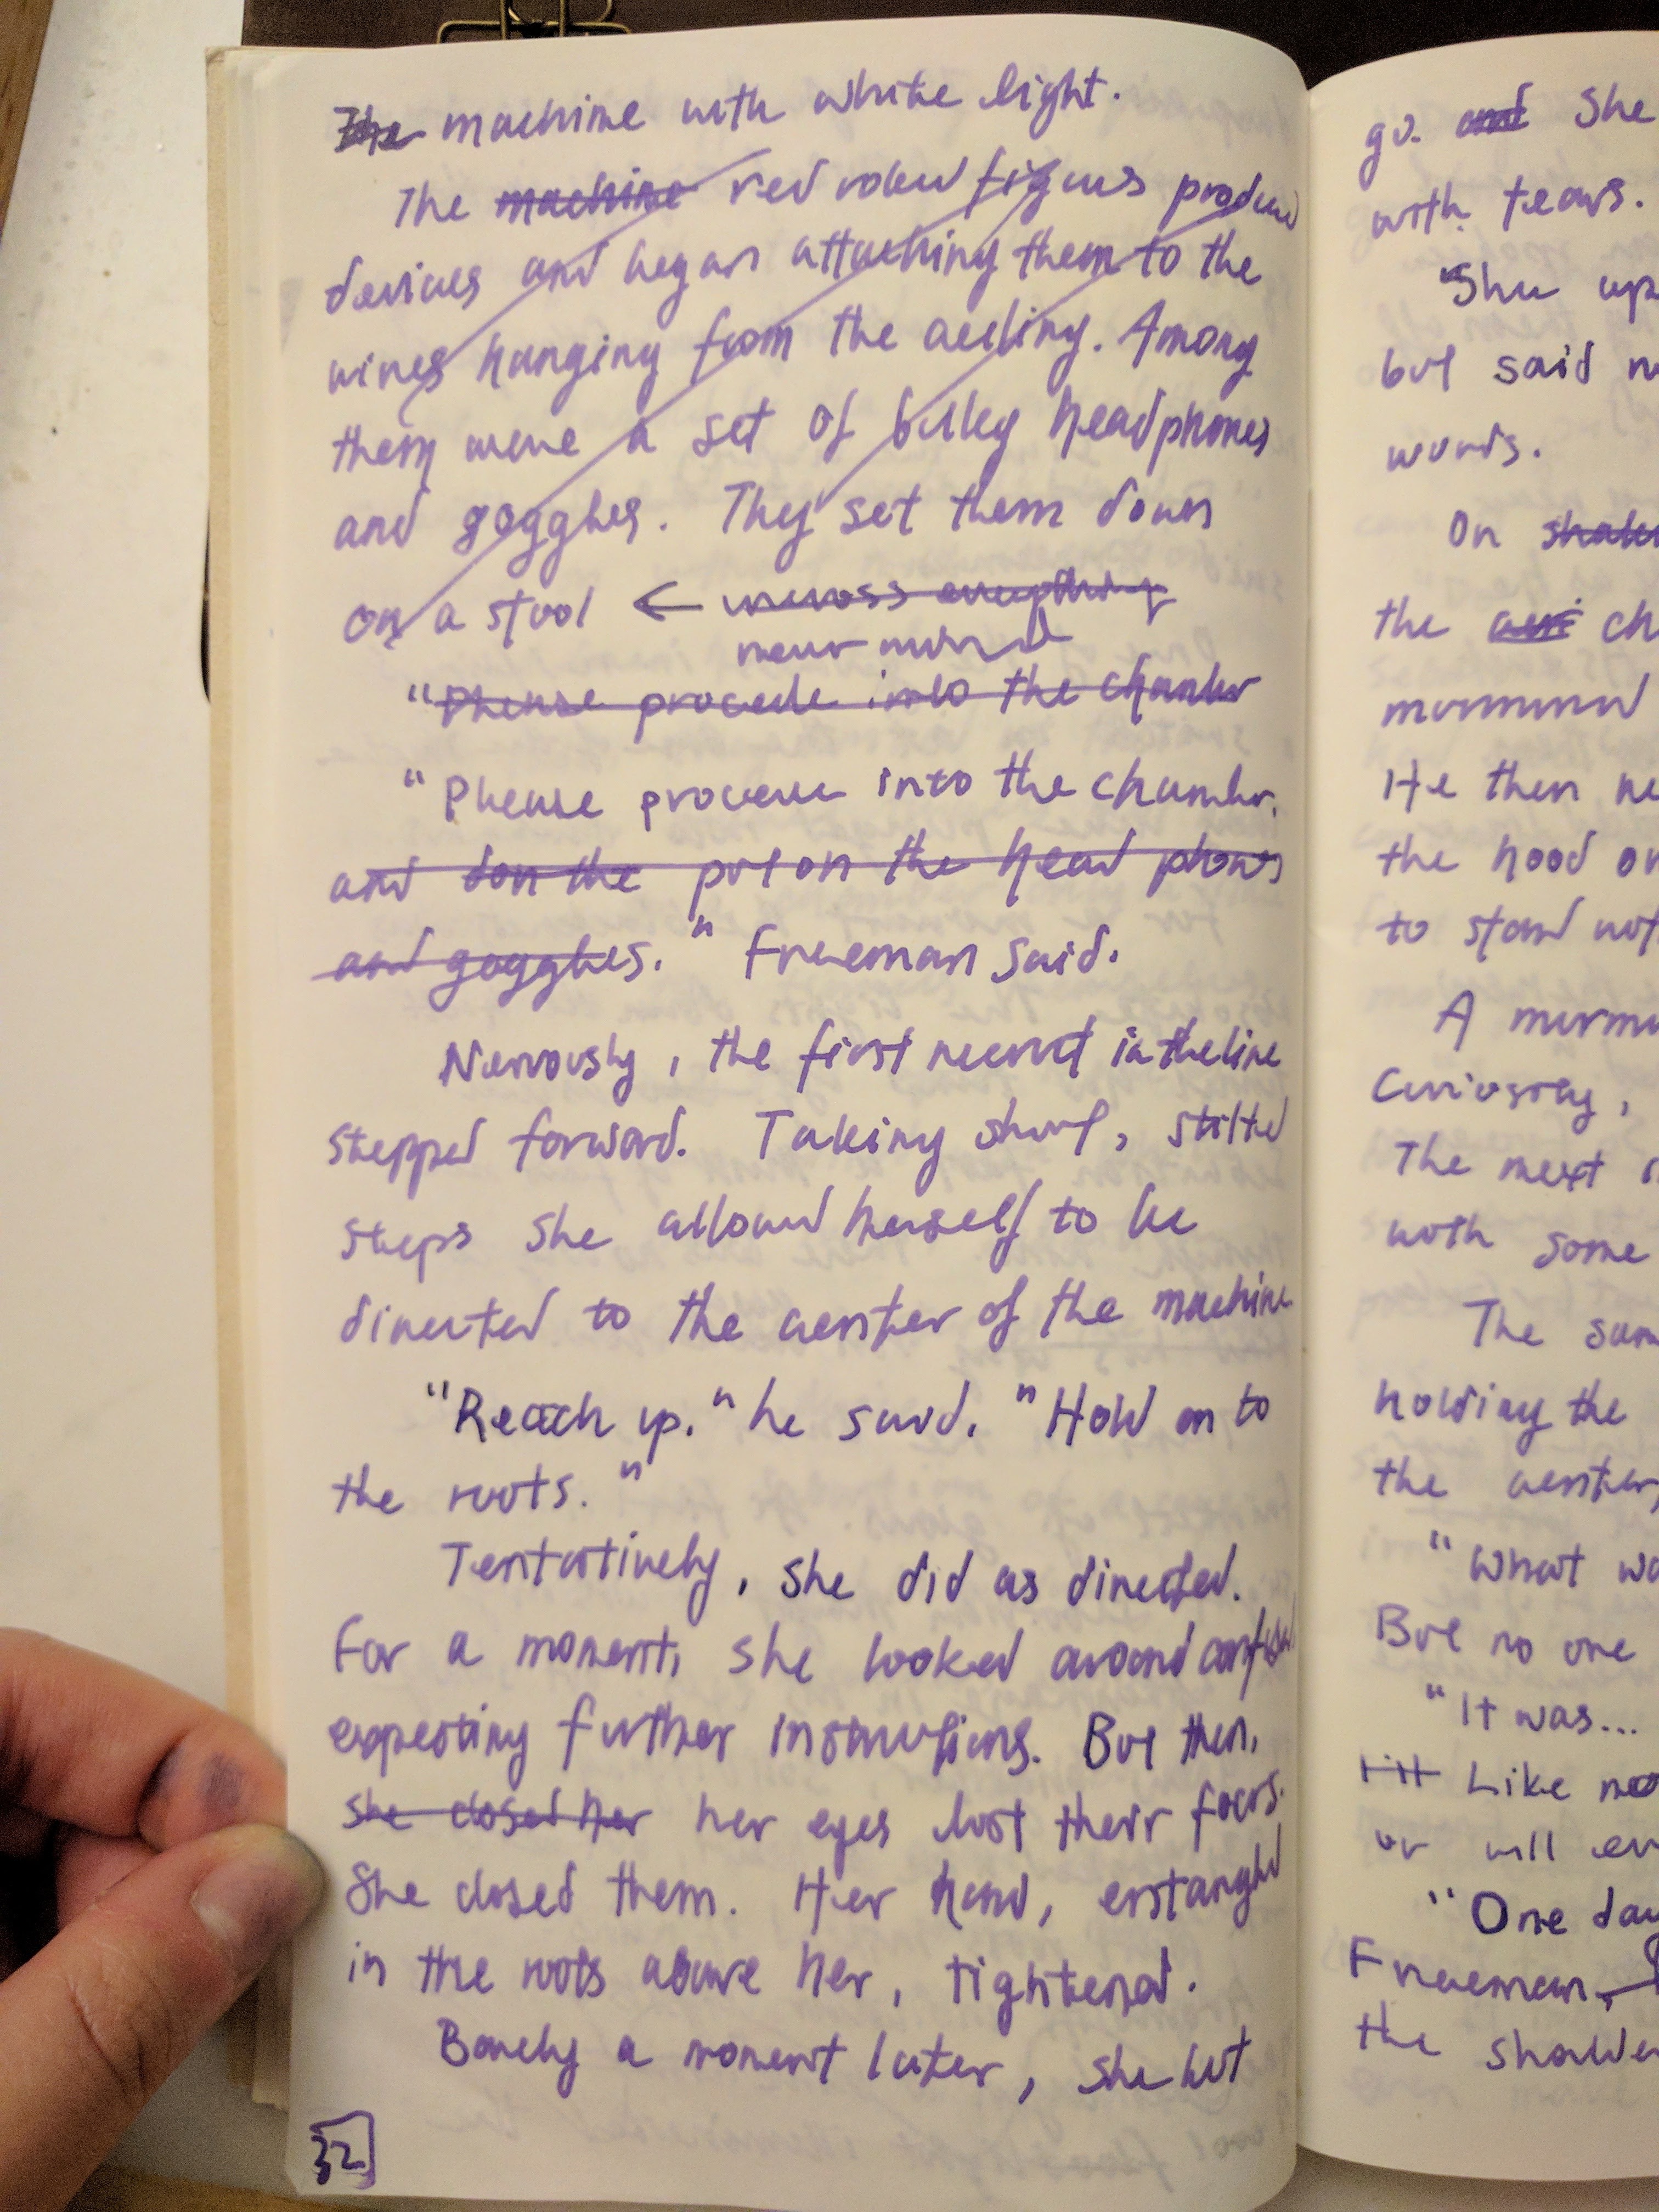 The machine with white light.
The machine red robed figures produced
devices and began attaching them to the
wires hanging from the ceiling. Among
them were a set of bulky headphones
and goggles. They set them down
on a stool ← across everything
near
"Please procede into the chamber
"Please procede into the chamber.
and don the put on the head phones
and goggles." Freeman said.
Nervously, the first recruit in the line
stepped forward. Taking short, stilted
steps she allowed herself to be
directed to the center of the machine
"Reach up." he said. "Hold on to
the roots."
Tentatively, she did as directed.
For a moment, she looked around confused
expecting further instructions. But then,
she closed her her eyes lost their focus.
She closed them. Her hand, entangled
in the roots above her, tightened.
Barely a moment later, she let
32
go. and She
with tears.
She
but said
words.
On
the ch
murmured
He then
the hood
to stand
A
Curiosity,
The next
with some
The
holding the
the center,
"What
But no one
"It was...
Like
or will
"One day
Freeman,
the